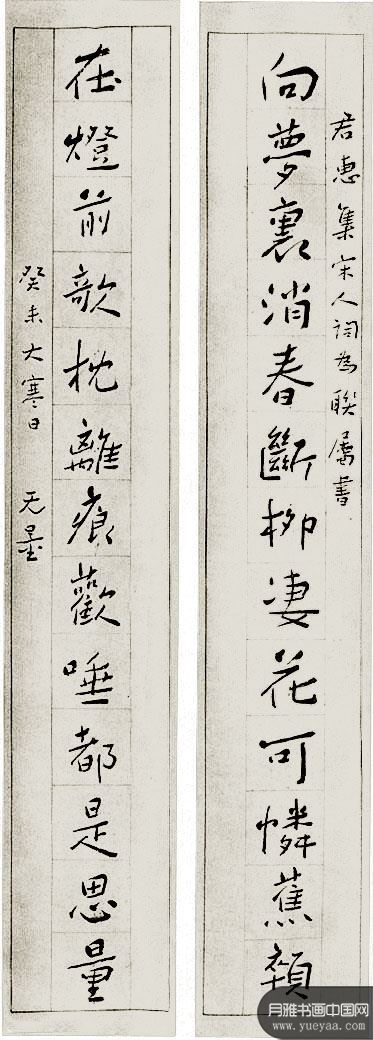 君惠集宋人詞為聯屬書
向夢裏消春斷柳凄花可憐蕉顇
在燈前欹枕離痕歡唾都是思量
癸未大寒日 无量
月雅书画中国网
www.yueyaa.com